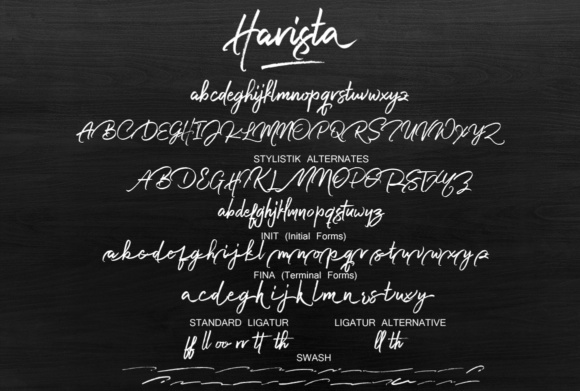 Harista
abcdeghijklmnopqrstuvwxyz
ABCDEGHIJKLMNOPQRSTUVWXYZ
STYLISTIK ALTERNATES
ABDEGHIKLMNOPQRSTYZ
abdefghjklmnopqstuwyz
INIT (Initial Forms)
abcdefghijklmnopqrstuvwxyz
FINA (Terminal Forms)
acdeghijklmnrstuxy
STANDARD LIGATUR LIGATUR ALTERNATIVE
ff ll oo rr tt th ll th
SWASH